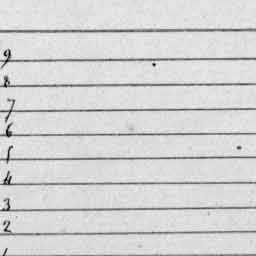 9
8
7
6
5
4
3
2
1